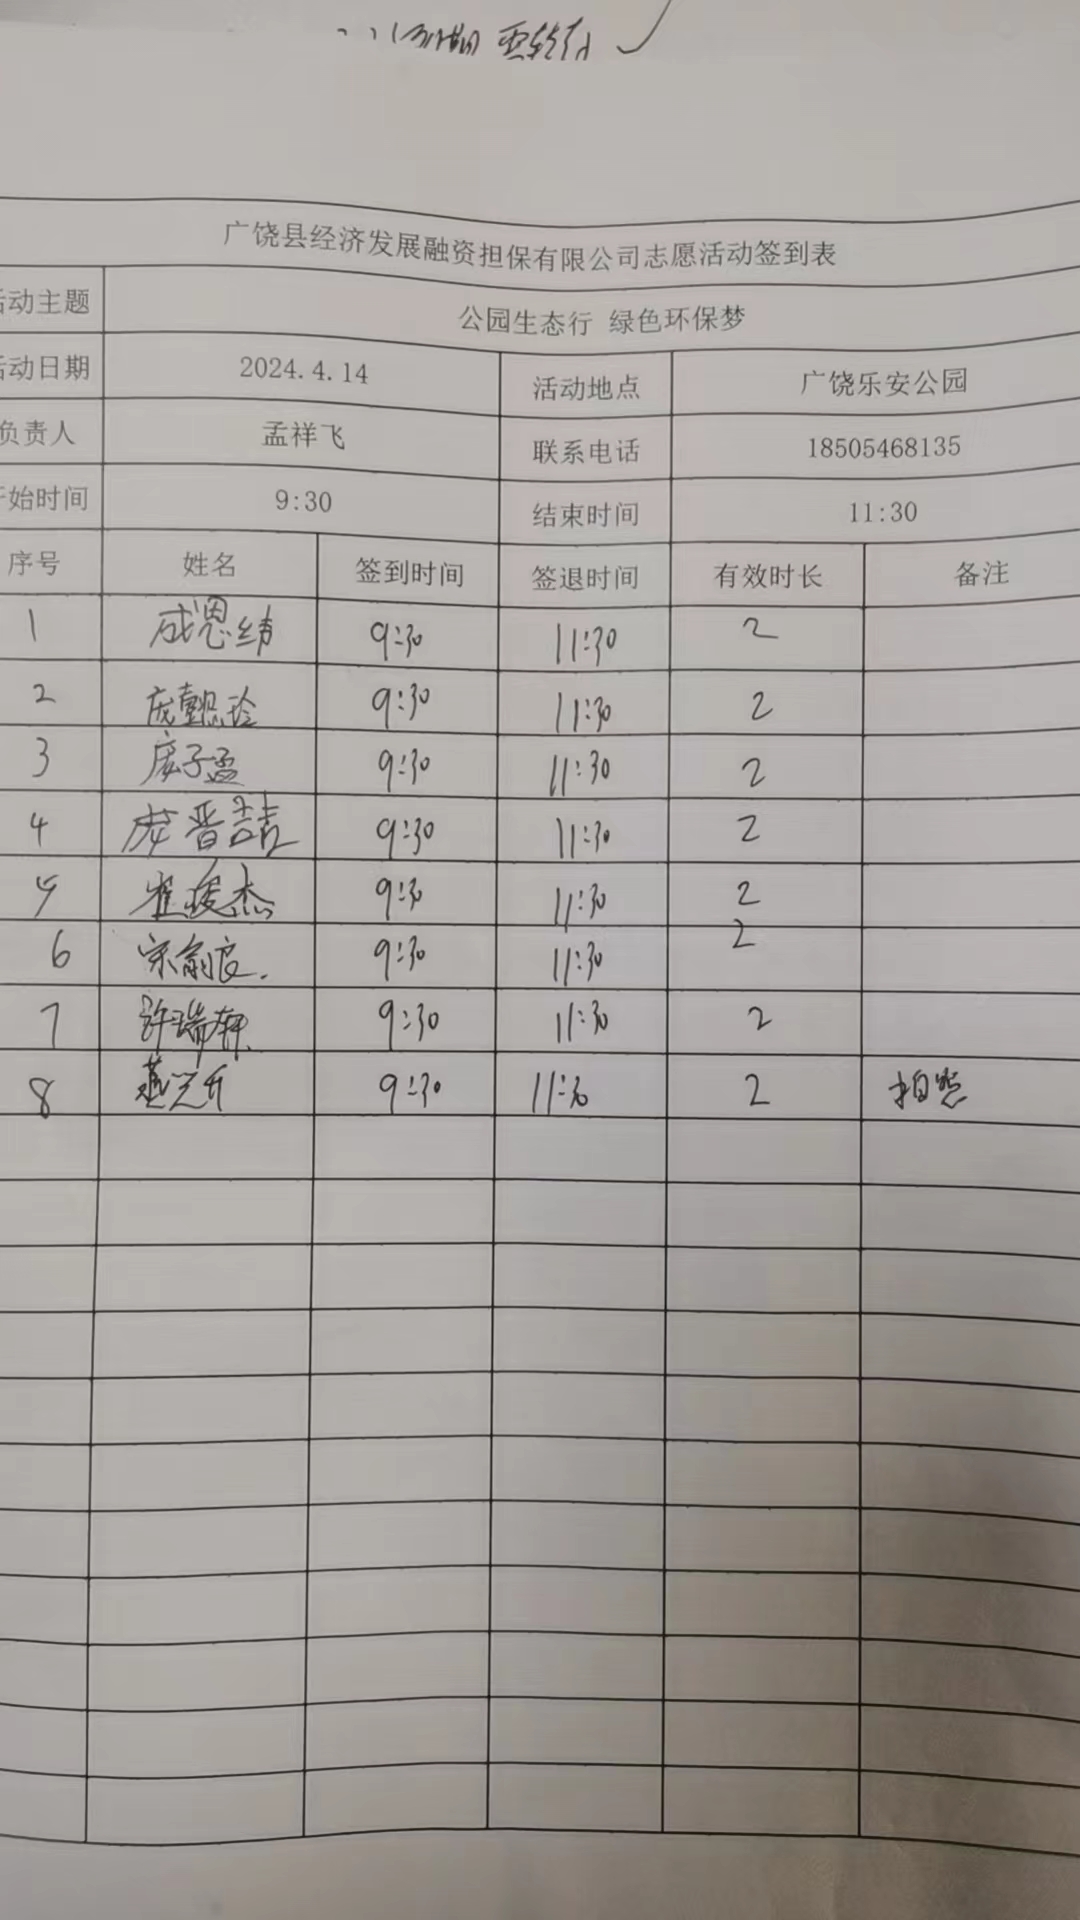 广饶县经济发展融资担保有限公司志愿活动签到表
活动主题 公园生态行 绿色环保梦
活动日期 2024.4.14 活动地点 广饶乐安公园
负责人 孟祥飞 联系电话 18505468135
开始时间 9:30 结束时间 11:30
序号 姓名 签到时间 签退时间 有效时长 备注
1 成恩纬 9:30 11:30 2
2 9:30 11:30 2
3 庞子孟 9:30 11:30 2
4 庞晋喆 9:30 11:30 2
5 崔浚杰 9:30 11:30 2
6 宋俞良. 9:30 11:30 2
7 许瑞轩. 9:30 11:30 2
8 9:30 11:30 2 拍照